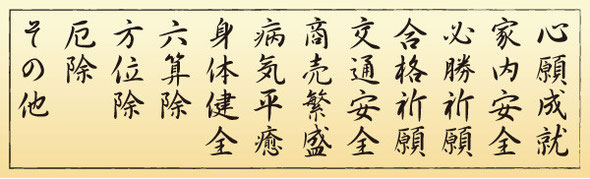 心願成就
家内安全
必勝祈願
合格祈願
交通安全
商売繁盛
病気平癒
身体健全
六算除
方位除
厄除
その他